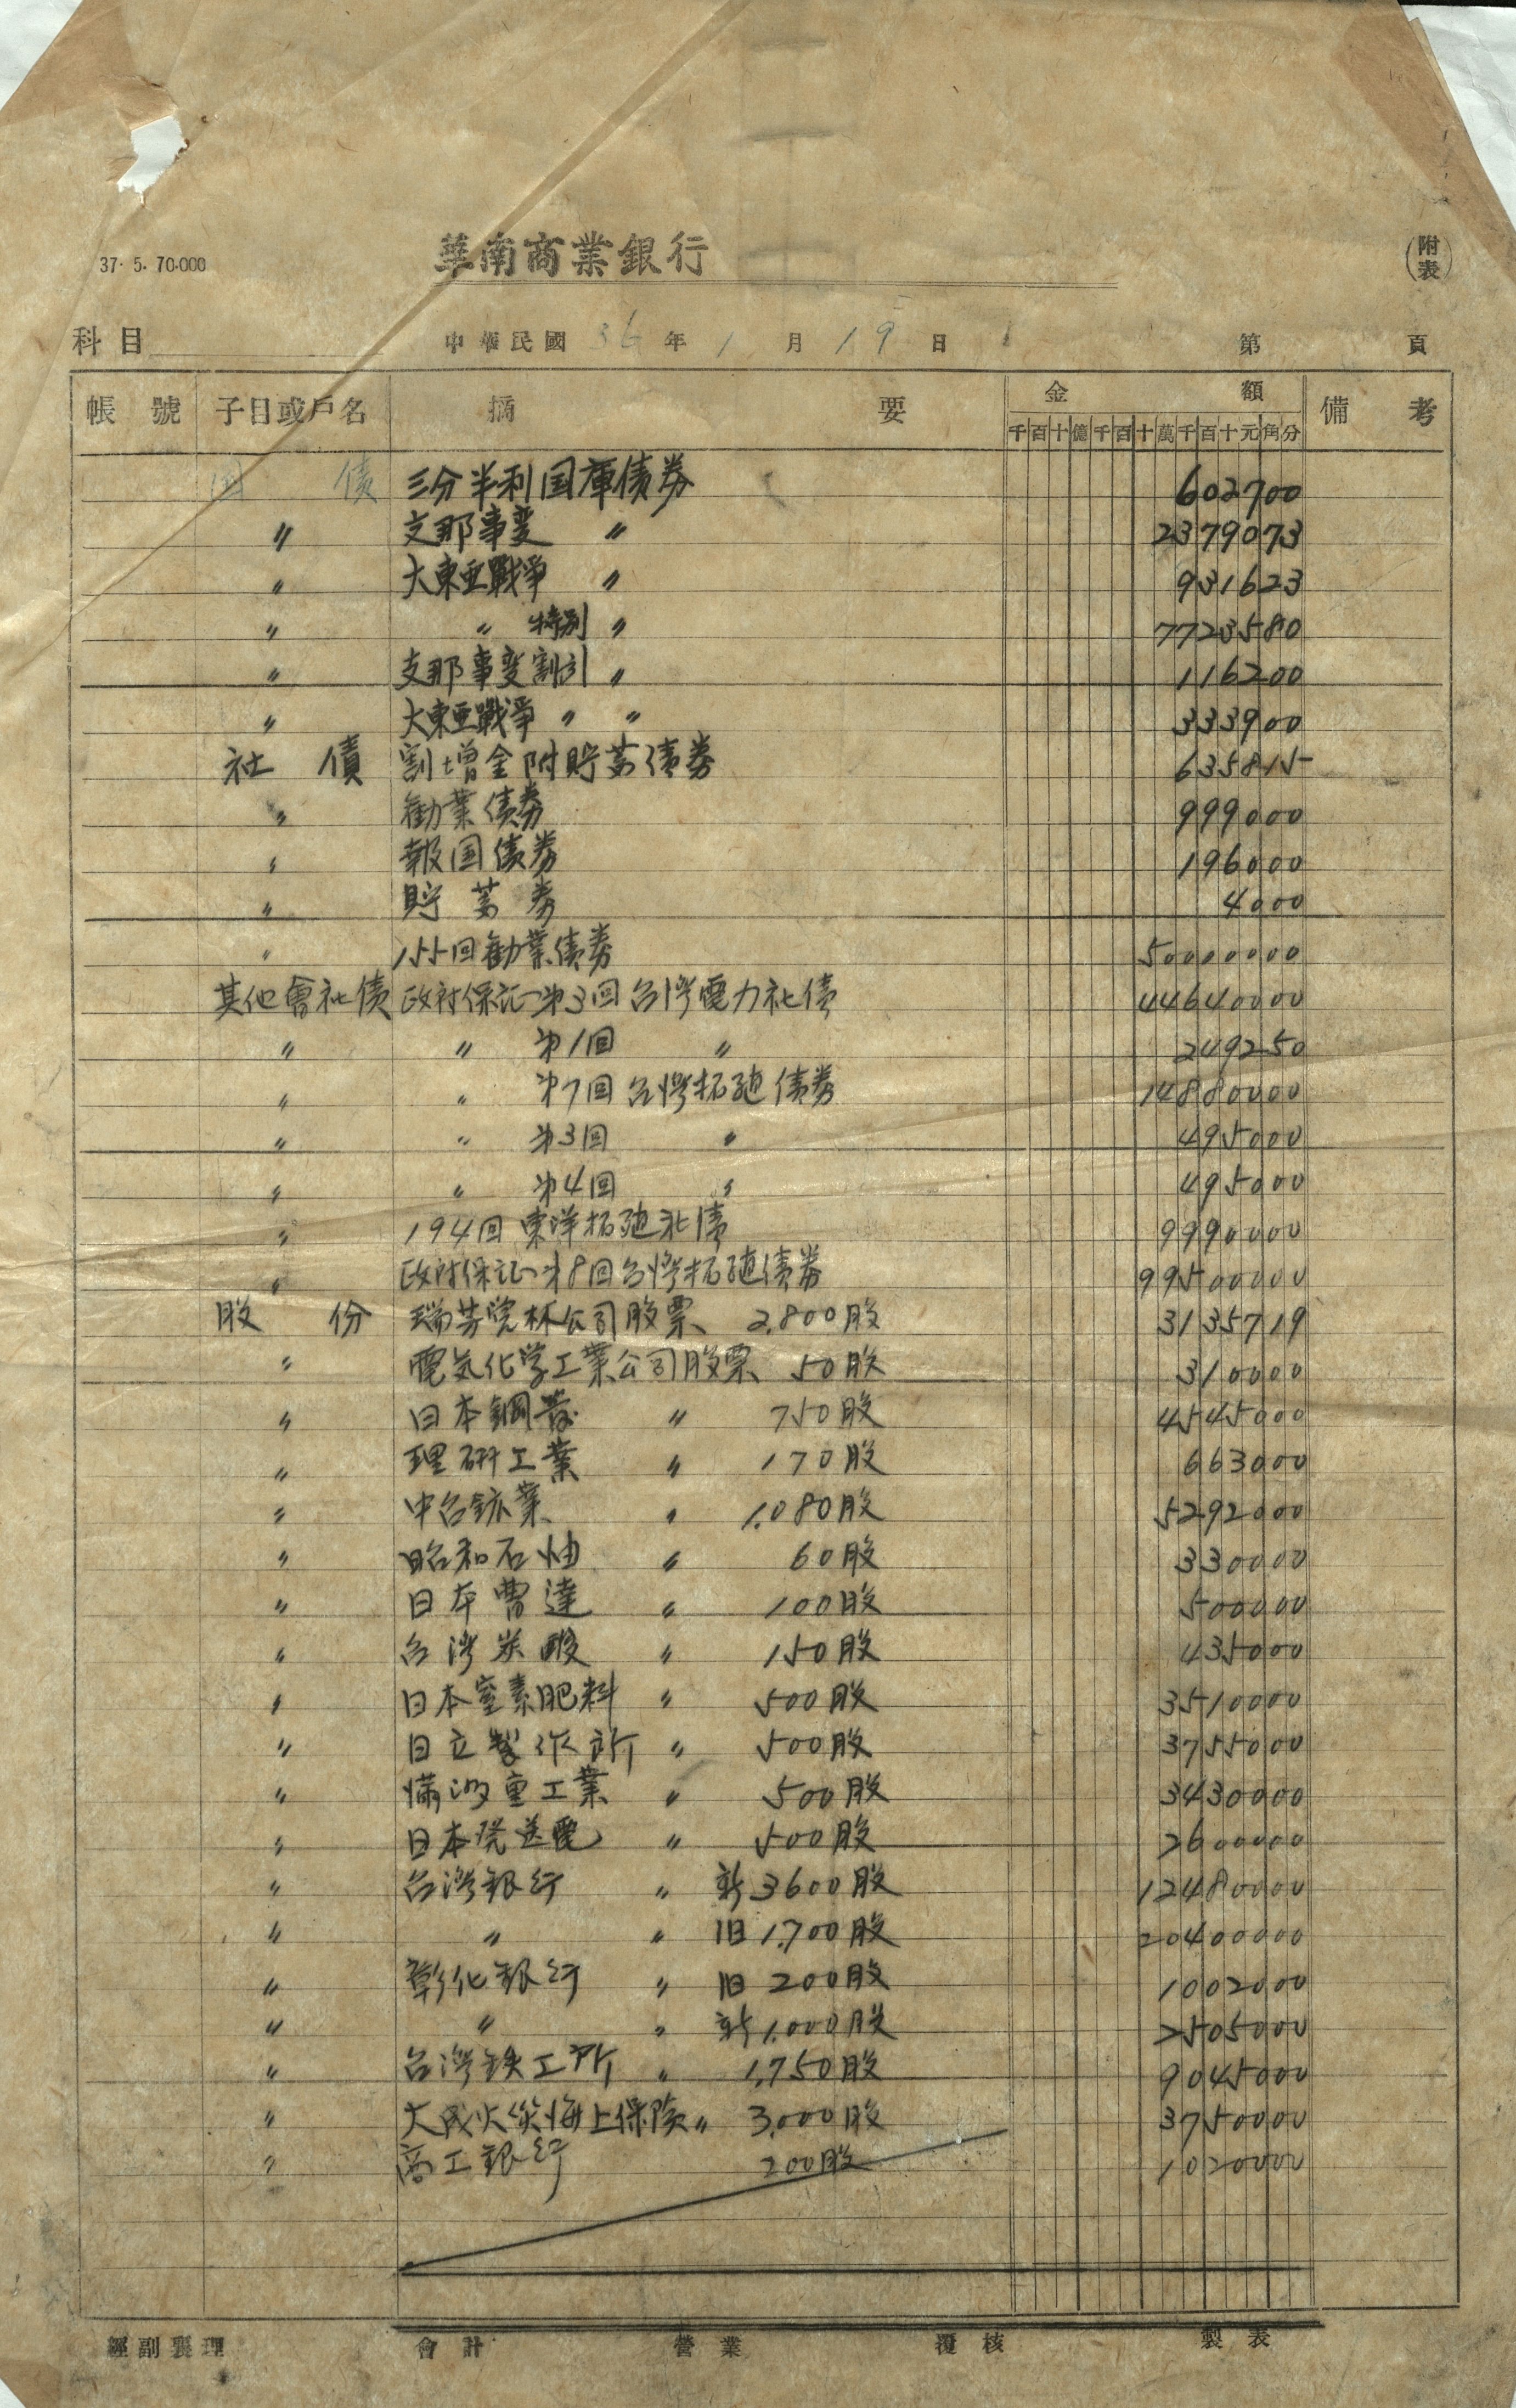 37. 5. 70.000
華南商業銀行
(附表)
科目 中華民國 36 年 1 月 19 日 第 頁
帳號 子目或戶名 摘要 金額 備考
千百十億千百十萬千百十元角分
國債 三分半利国庫債券 602700
〃 支那事変 〃 2379073
〃 大東亜戰爭 〃 931623
〃 〃 特別 〃 7723580
〃 支那事変割引 〃 116200
〃 大東亜戰爭 〃 〃 333900
社債 割增金附貯蓄債券 635815
〃 勧業債券 999000
〃 報国債券 196000
〃 貯蓄券 4000
〃 155回勧業債券 50000000
其他會社債 政府保証第3回台湾電力社債 44640000
〃 〃 第1回 〃 249250
〃 〃 第7回台湾拓殖債券 14880000
〃 〃 第3回 〃 495000
〃 〃 第4回 〃 495000
〃 194回東洋拓殖社債 9990000
〃 政府保証第8回台湾拓殖債券 99500000
股份 瑞芳 公司股票 2,800股 3135719
〃 電気化学工業公司股票 50股 310000
〃 日本鋼管 〃 750股 4545000
〃 理研工業 〃 170股 663000
〃 中台鉱業 〃 1,080股 5292000
〃 昭和石油 〃 60股 330000
〃 日本曹達 〃 100股 500000
〃 台湾炭酸 〃 150股 435000
〃 日本窒素肥料 〃 500股 3510000
〃 日立製作所 〃 500股 3755000
〃 満洲重工業 〃 500股 3430000
〃 日本発送電 〃 500股 2600000
〃 台湾銀行 〃 新3600股 12480000
〃 〃 〃 旧1,700股 20400000
〃 彰化銀行 〃 旧200股 1002000
〃 〃 〃 新1,000股 2505000
〃 台湾鉄工所 〃 1,750股 9045000
〃 大成火災海上保険 〃 3,000股 3750000
〃 商工銀行 200股 1020000
經副襄理 會計 營業 覆核 製表